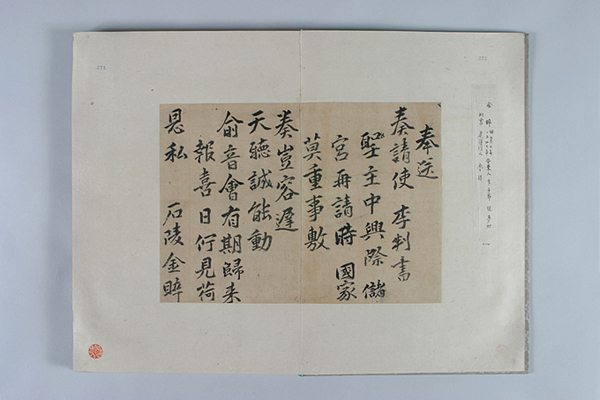 奉送
奏請使 李判書
聖主中興際儲
宮再請時 國家
莫重事敷
奏豈容遲
天聽誠能動
俞音會有期歸来
報喜日佇見荷
恩私 石陵金晬